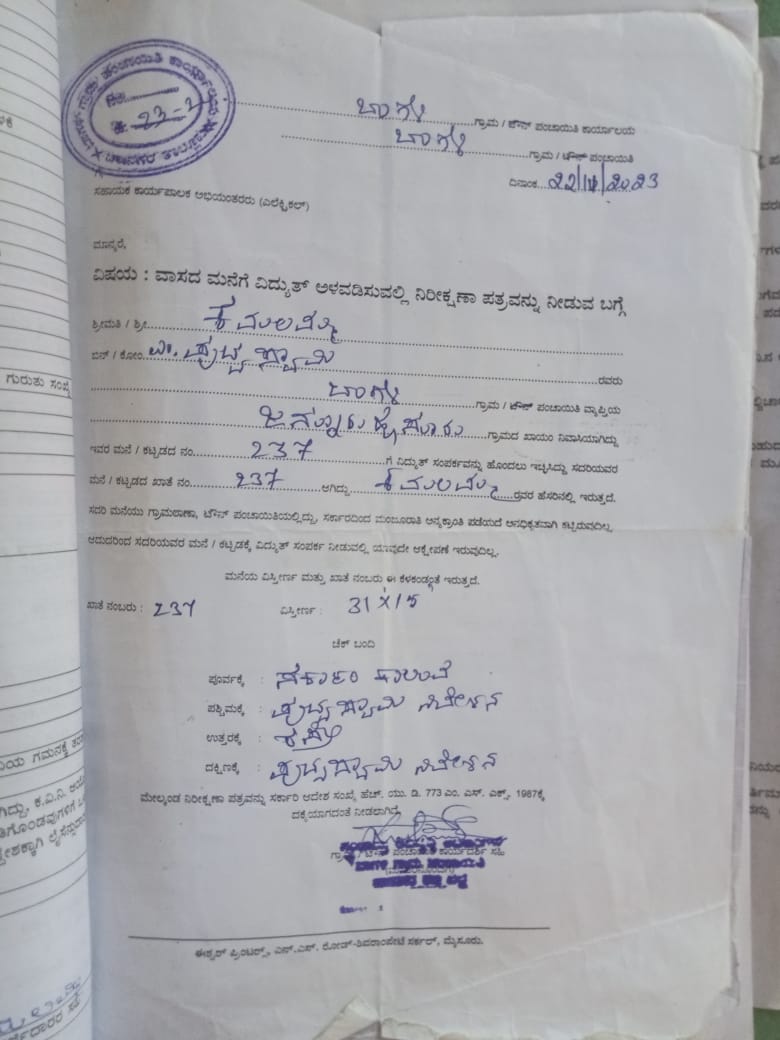 ಗ್ರಾಮ ಪಂಚಾಯಿತಿ ಕಾರ್ಯಾಲಯ
23-2
ಬಾಗಳಿ ಗ್ರಾಮ / ಟೌನ್ ಪಂಚಾಯಿತಿ ಕಾರ್ಯಾಲಯ
ಬಾಗಳಿ ಗ್ರಾಮ / ಟೌನ್ ಪಂಚಾಯಿತಿ
ದಿನಾಂಕ 22/11/2023
ಸಹಾಯಕ ಕಾರ್ಯಪಾಲಕ ಅಭಿಯಂತರರು (ಎಲೆಕ್ಟ್ರಿಕಲ್)
ಮಾನ್ಯರೆ,
ವಿಷಯ : ವಾಸದ ಮನೆಗೆ ವಿದ್ಯುತ್ ಅಳವಡಿಸುವಲ್ಲಿ ನಿರೀಕ್ಷಣಾ ಪತ್ರವನ್ನು ನೀಡುವ ಬಗ್ಗೆ
ಶ್ರೀಮತಿ / ಶ್ರೀ ಕಮಲಮ್ಮ
ಬಿನ್ / ಕೋಂ ಪುಟ್ಟಸ್ವಾಮಿ ರವರು
ಬಾಗಳಿ ಗ್ರಾಮ / ಟೌನ್ ಪಂಚಾಯಿತಿ ವ್ಯಾಪ್ತಿಯ
ಗ್ರಾಮದ ಖಾಯಂ ನಿವಾಸಿಯಾಗಿದ್ದು
ಇವರ ಮನೆ / ಕಟ್ಟಡದ ನಂ. 237 ಗೆ ವಿದ್ಯುತ್ ಸಂಪರ್ಕವನ್ನು ಹೊಂದಲು ಇಚ್ಛಿಸಿದ್ದು ಸದರಿಯವರ
ಮನೆ / ಕಟ್ಟಡದ ಖಾತೆ ನಂ. 237 ಆಗಿದ್ದು ಕಮಲಮ್ಮ ರವರ ಹೆಸರಿನಲ್ಲಿ ಇರುತ್ತದೆ.
ಸದರಿ ಮನೆಯು ಗ್ರಾಮಠಾಣಾ, ಟೌನ್ ಪಂಚಾಯಿತಿಯಲ್ಲಿದ್ದು, ಸರ್ಕಾರದಿಂದ ಮಂಜೂರಾತಿ ಅನ್ಯಕ್ರಾಂತಿ ಪಡೆಯದೆ ಅನಧಿಕೃತವಾಗಿ ಕಟ್ಟಿರುವುದಿಲ್ಲ.
ಆದುದರಿಂದ ಸದರಿಯವರ ಮನೆ / ಕಟ್ಟಡಕ್ಕೆ ವಿದ್ಯುತ್ ಸಂಪರ್ಕ ನೀಡುವಲ್ಲಿ ಯಾವುದೇ ಆಕ್ಷೇಪಣೆ ಇರುವುದಿಲ್ಲ.
ಮನೆಯ ವಿಸ್ತೀರ್ಣ ಮತ್ತು ಖಾತೆ ನಂಬರು ಈ ಕೆಳಕಂಡಂತೆ ಇರುತ್ತದೆ.
ಖಾತೆ ನಂಬರು : 237 ವಿಸ್ತೀರ್ಣ : 31 X 15
ಚೆಕ್ ಬಂದಿ
ಪೂರ್ವಕ್ಕೆ : ಸರ್ಕಾರಿ ಕಾಲುವೆ
ಪಶ್ಚಿಮಕ್ಕೆ : ಪುಟ್ಟಸ್ವಾಮಿ ನಿವೇಶನ
ಉತ್ತರಕ್ಕೆ : ರಸ್ತೆ
ದಕ್ಷಿಣಕ್ಕೆ : ಪುಟ್ಟಸ್ವಾಮಿ ನಿವೇಶನ
ಮೇಲ್ಕಂಡ ನಿರೀಕ್ಷಣಾ ಪತ್ರವನ್ನು ಸರ್ಕಾರಿ ಆದೇಶ ಸಂಖ್ಯೆ ಹೆಚ್. ಯು. ಡಿ. 773 ಎಂ. ಎಸ್. ಎಕ್ಸ್. 1987ಕ್ಕೆ
ದಕ್ಕೆಯಾಗದಂತೆ ನೀಡಲಾಗಿದೆ.
ಈಶ್ವರ್ ಪ್ರಿಂಟರ್ಸ್, ಎನ್.ಎಸ್. ರೋಡ್-ಶಿವರಾಂಪೇಟೆ ಸರ್ಕಲ್, ಮೈಸೂರು.